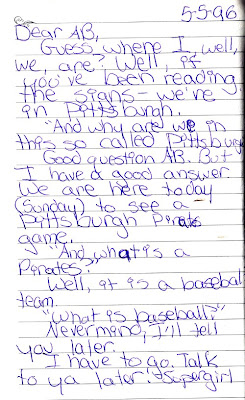 5-5-96
Dear AB,
Guess where I, well,
we, are? Well, if
you've been reading
the signs - we're
in Pittsburgh.
"And why are we in
this so called Pittsburgh
Good question AB. But
I have a good answer
we are here today
(Sunday) to see a
Pittsburgh Pirates
game.
"And what is a
Pirates?"
Well, it is a baseball
team.
"What is baseball?"
Nevermind, I'll tell
you later.
I have to go. Talk
to ya later! Supergirl